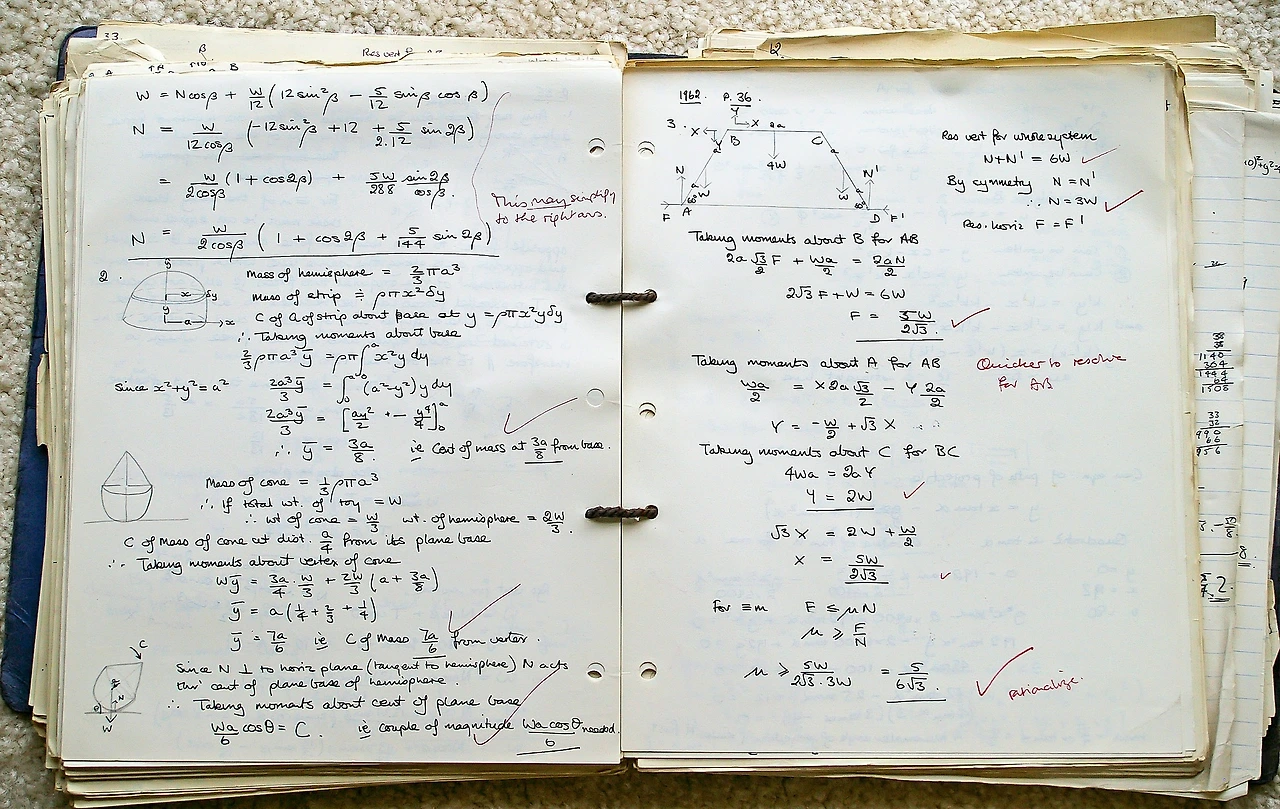 33.
β
Res vert
A B
W = Ncosβ + W/12 (12sin²β − 5/12 sinβ cosβ)
N = W/12cosβ (−12sin²β + 12 + 5/2.12 sin2β)
= W/2cosβ (1 + cos2β) + 5W/288 sin2β/cosβ.
This may simplify
to the right ans.
N = W/2cosβ (1 + cos2β + 5/144 sin2β)
2.
y
x δy
y
a x
Mass of hemisphere = 2/3 πa³
Mass of strip ≑ ρπx²δy
C of G of strip about base at y = ρπx²yδy
∴ Taking moments about base
2/3 ρπa³ȳ = ρπ∫₀ᵃ x²y dy
Since x²+y² = a² 2a³ȳ/3 = ∫₀ᵃ (a²−y²)y dy
2a³ȳ/3 = [ay²/2 + − y⁴/4]₀ᵃ
∴ ȳ = 3a/8. ie Cent of mass at 3a/8 from base.
Mass of cone = 1/3 ρπa³
∴ If total wt. of toy = W
∴ wt of cone = W/3 wt. of hemisphere = 2W/3.
C of Mass of cone at dist. a/4 from its plane base
∴ Taking moments about vertex of cone
Wȳ = 3a/4 . W/3 + 2W/3 (a + 3a/8)
ȳ = a(1/4 + 2/3 + 1/4)
ȳ = 7a/6 ie C of Mass 7a/6 from vertex.
C
N
θ
W
Since N ⊥ to horiz plane (tangent to hemisphere) N acts
thro' cent of plane base of hemisphere.
∴ Taking moments about cent of plane base
Wa/6 cosθ = C. ie couple of magnitude Wa cosθ/6 needed.
12
1962. P. 36.
3. X Y X 2a
B C
a a
4W
N N'
a W W a
60° 60°
F A D F'
Res vert for whole system
N+N' = 6W
By symmetry N = N'
∴ N = 3W
Res. horiz F = F'
Taking moments about B for AB
2a√3/2 F + Wa/2 = 2aN/2
2√3 F + W = 6W
F = 5W/2√3.
Taking moments about A for AB
Quicker to resolve
for AB
Wa/2 = X 2a√3/2 − Y 2a/2
Y = −W/2 + √3 X
Taking moments about C for BC
4Wa = 2aY
Y = 2W
√3 X = 2W + W/2
X = 5W/2√3
For ≡m F ≤ μN
μ ≥ F/N
μ ≥ 5W/2√3.3W = 5/6√3.
rationalize.
38
38
1140
304
1444
64
1500
33
32
990
66
956
8.
2.